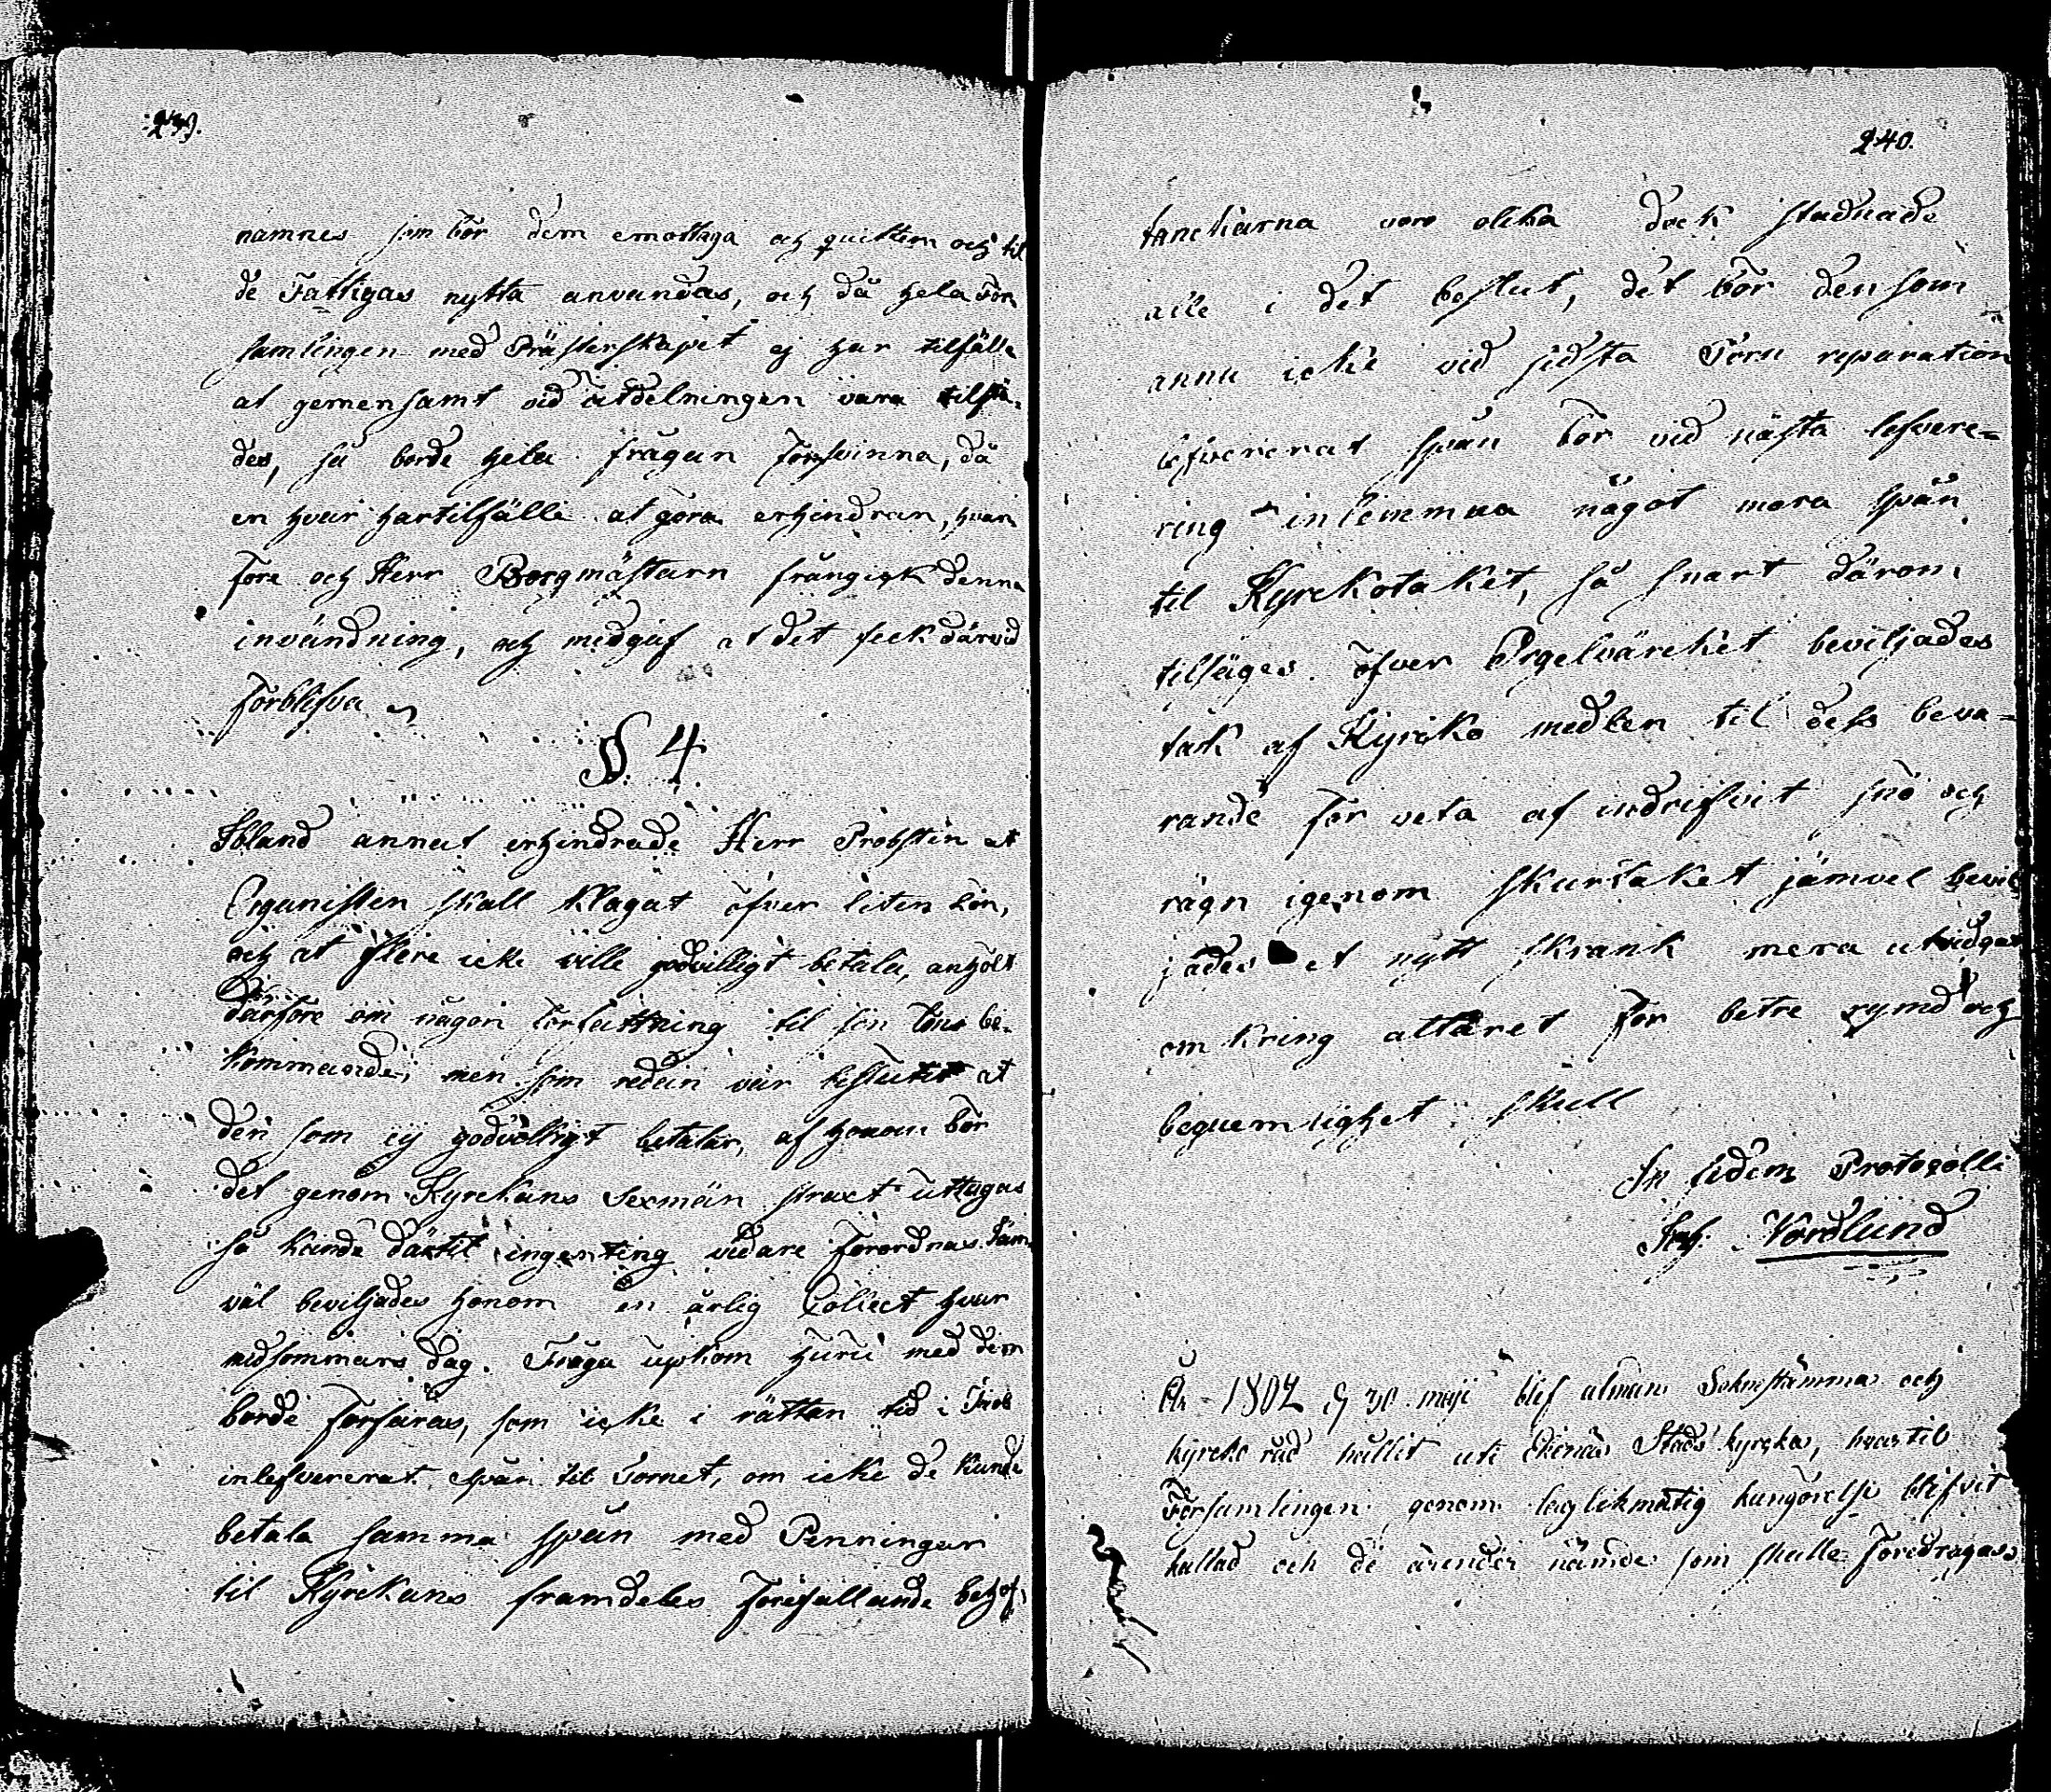 239.
namnes som bör dem emottaga och quittera och til
de Fattigas nytta användas, och då hela För
samlingen med Prästerskapet ej har tilfälle
at gemensamt vid utdelningen vara tilstä-
des, så borde hela frågan försvinna, då
en hvar har tilfälle at göra erhindran, hvar
före och Herr Borgmästarn frångick denna
invändning, och medgaf at det feck därvid
förblifva
§ 4.
Ibland annat erhindrade Herr Probsten at
Organisten skall klagat öfver liten Lön,
och at flere icke ville godvilligt betala, anhölt
därföre om någon författning til sin Löns be-
kommande; men som redan var beslutet at
den som ej godvilligt betalar, af honom bör
det genom Kyrekans Sexmän straxt uttagas
så kunde därtil ingenting vidare förordnas. Jäm
väl beviljades honom en årlig Collect hvar
midsommars dag. Fråga upkom huru med dem
borde förfaras, som icke i rättan tid
inlefvererat spån til Tornet, om icke de kunde
betala samma spån med Penningar
til Kyrekans framdeles förefallande behof,
240.
tanckarna voro olika dock stadnade
alle i det beslut, det bör den som
ännu icke vid sidsta Torn reparation
lefvererat spån bör vid nästa lefvere-
ring inlemmna något mera spån
til Kyrckotaket, så snart därom
tilsäges. öfver Orgelvärcket beviljades
tak af Kyrcko medlen til dess beva-
rande för veta af indrifvit snö och
rägn igenom skurtaket jämvel bevil
jades et nytt skrank mera utvidgat
omkring altaret för bätre rymd och
bequemlighet skull
In fidem Protocolli
Joh. Nordlund
År 1802 d 30 maji blef alman Soknestämma och
kyrcko råd hållit uti Ekenäs Stads kyrcka, hvartil
Församlingen genom laglikmätig kungörelse blifvit
kallad och de ärender nämde som skulle Föredragas